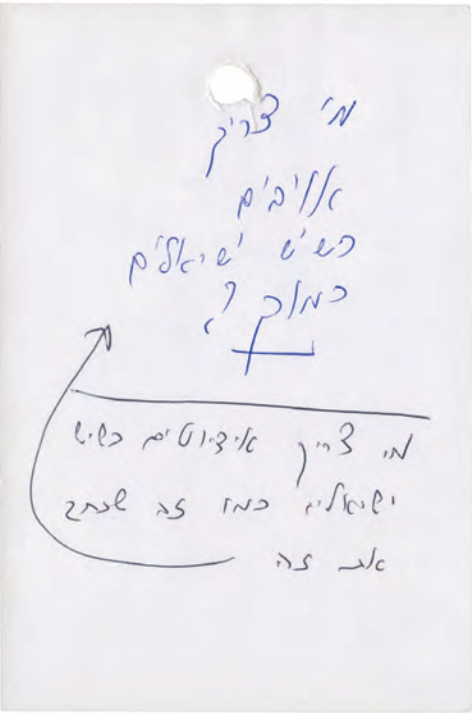 מי צריך
אויבים
כשיש ישראלים
כמוך ?
מי צריך אידיוטים כשיש
ישראלים כמו זה שכתב
את זה